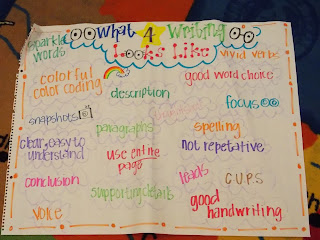 What 4 Writing
Looks Like
sparkle
words
vivid verbs
colorful
color coding
good word choice
description
focus
snapshots
paragraphs
spelling
clear, easy to
understand
use entire
page
not repetative
conclusion
supporting details
leads
C.U.P.S
good
handwriting
voice